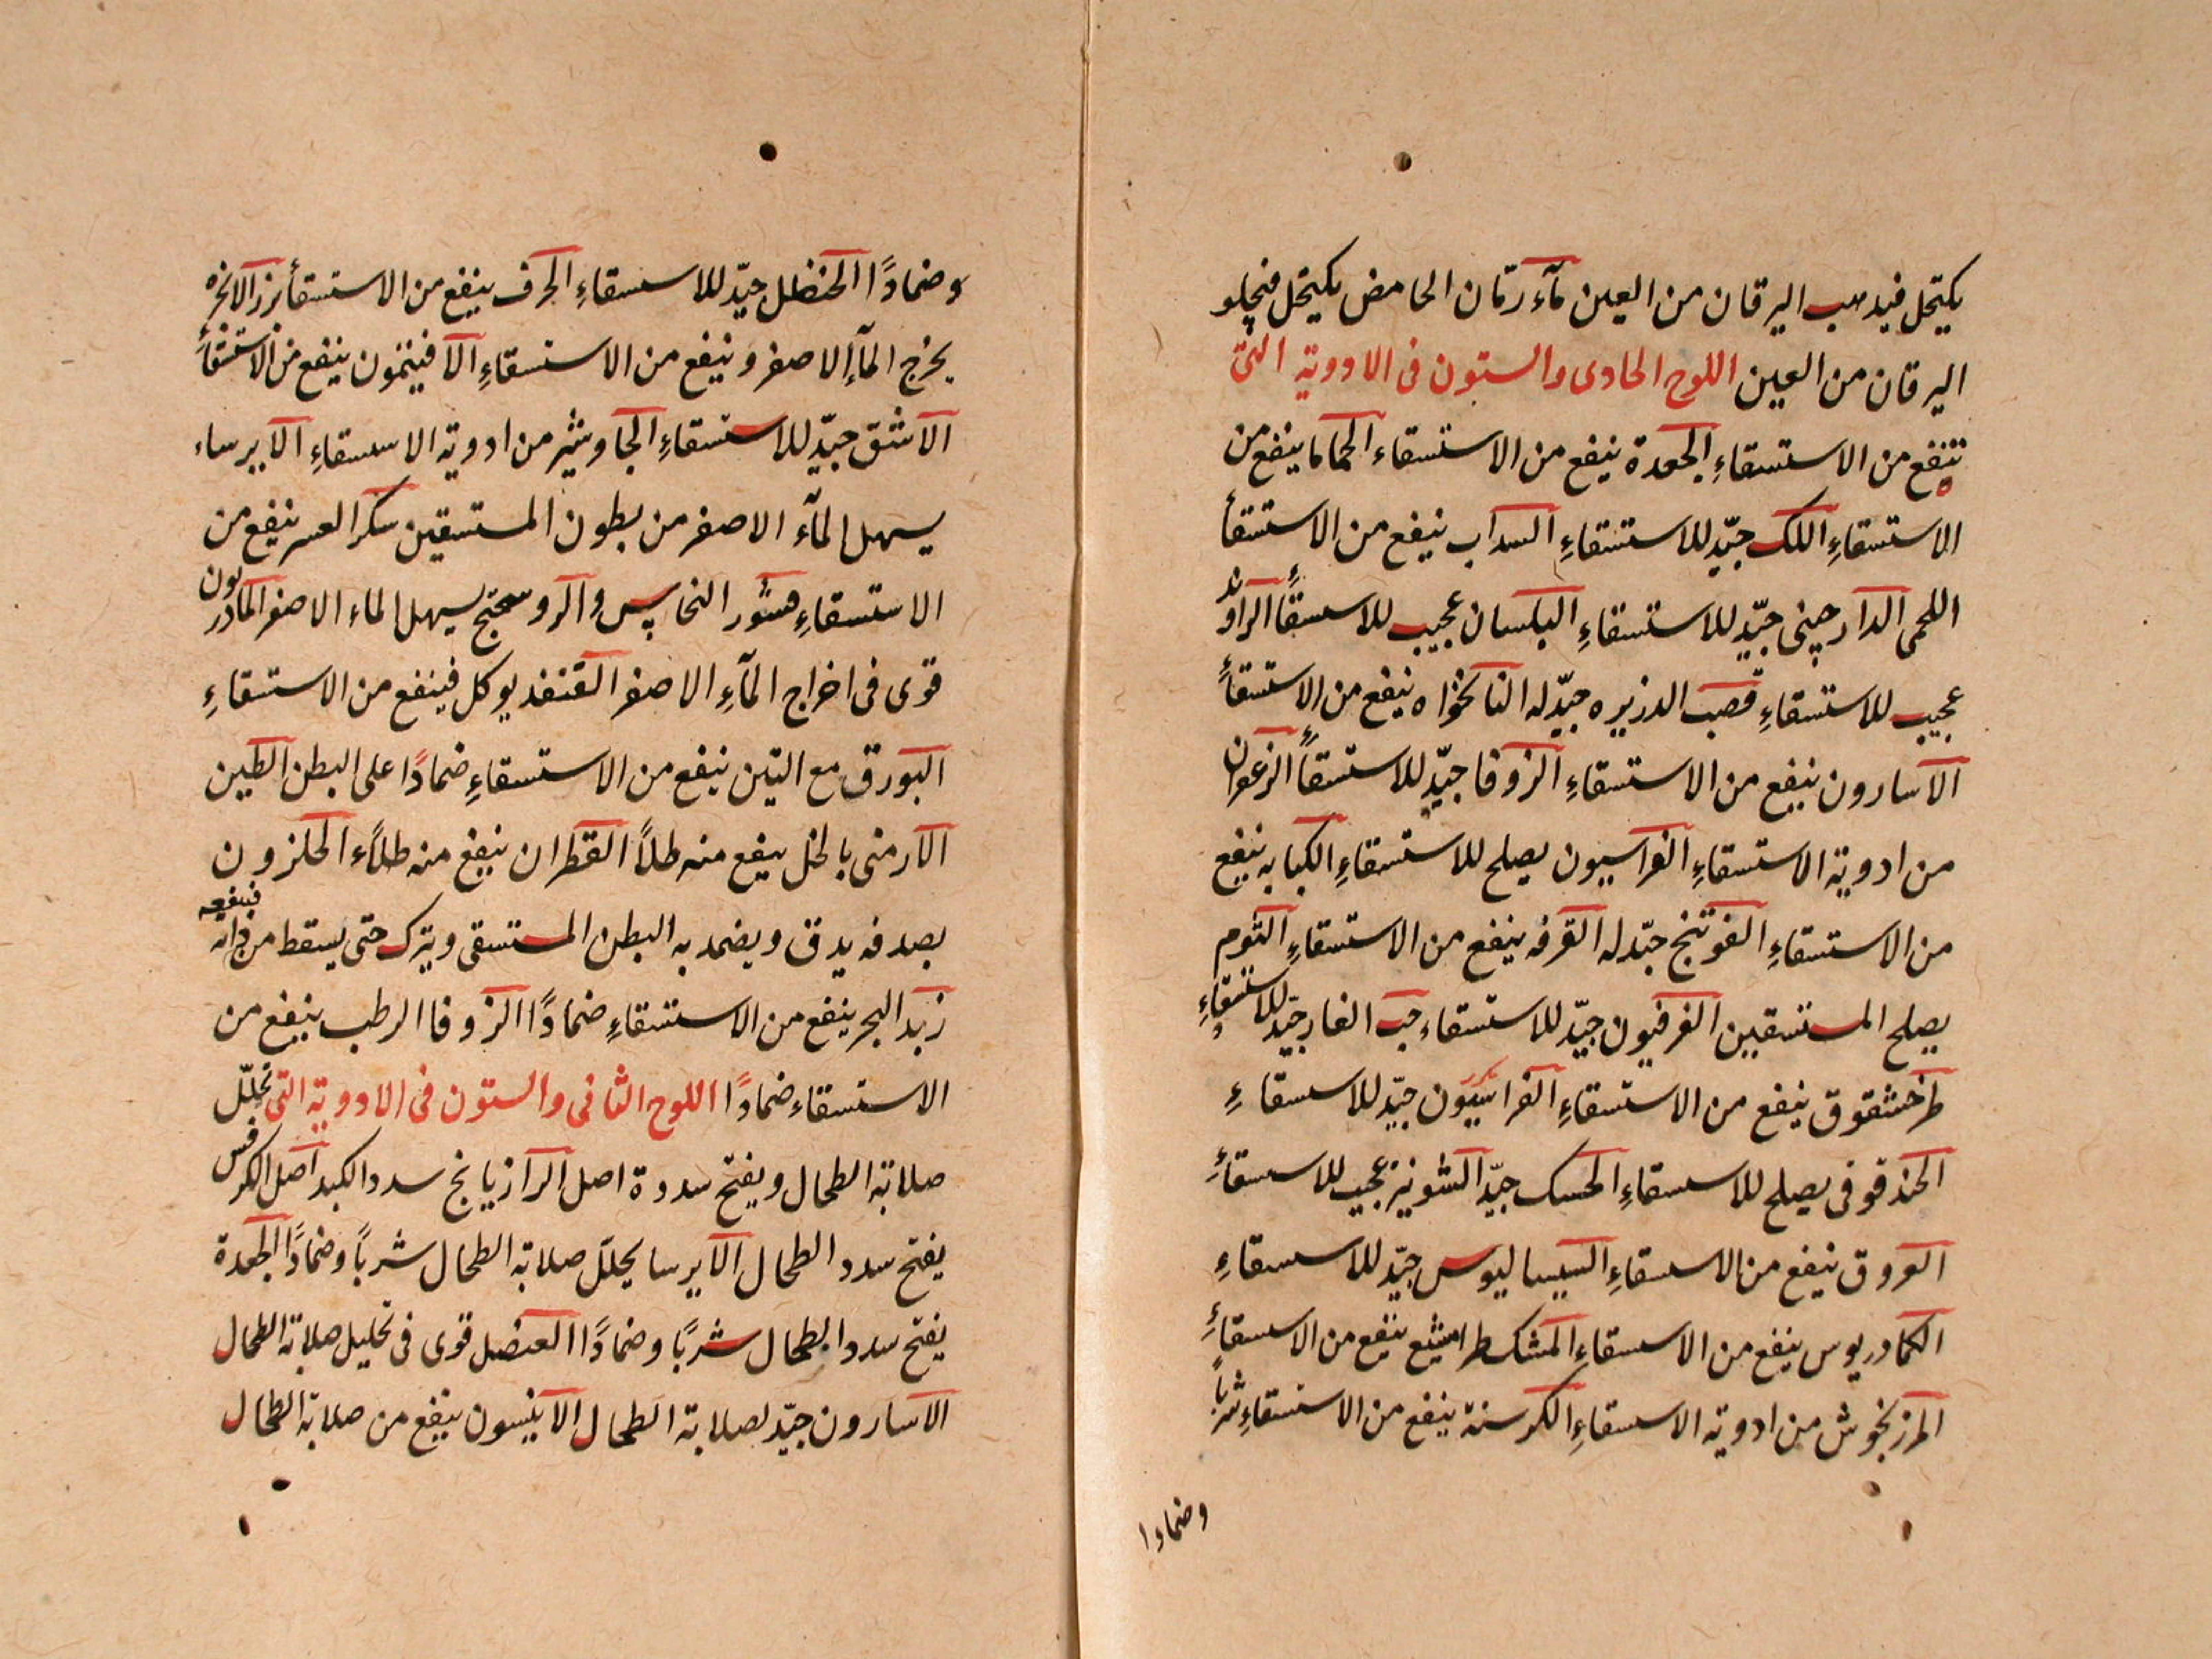 يكتحل فيذهب اليرقان من العين مآء رمّان الحامض يكتحل فيجلو
اليرقان من العين اللوح الحادى والستون فى الادوية التى
تنفع من الاستسقاءِ الجعدة ينفع من الاستسقاء الحماما ينفع من
الاستسقاءِ اللك جيّد للاستسقاءِ السداب ينفع من الاستسقأ
اللحمى الدارچينى جيّد للاستسقاءِ البلسان عجيب للاسسقأ الراوند
عجيب للاستسقاءِ قصب الدزيره جيّد له النانخواه ينفع من الاستسقأ
الاسارون ينفع من الاستسقاءِ الزوفا جيّد للاستسقأ الزعفران
من ادوية الاستسقاءِ الفراسيون يصلح للاستسقاءِ الكبابه ينفع
من الاستسقاءِ الفوتنج جيّد له القرفه ينفع من الاستسقاءِ الثوم
يصلح المستسقين الفرفيون جيّد للاستسقاء حب الغار جيّد للاستسقاءِ
طرخشقوق ينفع من الاستسقاءِ الفراسيون جيّد للاسسقاءِ
الحندقوقى يصلح للاسسقاءِ الحسك جيّد الشونيز عجيب للاسسقأ
العروق ينفع من الاسسقاءِ السيساليوس جيّد للاسسقاءِ
الكمادريوس ينفع من الاسسقاءِ المشكطرامشيع ينفع من الاسسقأ
المرزنجوش من ادوية الاسسقاءِ الكرسنة ينفع من الاستسقاءِ شرباً
وضمادا
وضمادًا الحنظل جيّد للاسسقاءِ الحرف ينفع من الاستسقأ بزر الانجره
يخرج المآء الاصفر وينفع من الاستسقاءِ الافيثمون ينفع من الاستسقأ
الاشق جيّد للاستسقاءِ الجاوشير من ادوية الاسسقاءِ الايرساء
يسهل المآء الاصفر من بطون المستسقين سكر العسر ينفع من
الاستسقاءِ قشور النحاس والروسختج يسهل الماء الاصفر المادريون
قوى فى اخراج المآءِ الاصفر القنفد يوكل فينفع من الاستسقاءِ
البورق مع التين ينفع من الاستسقاءِ ضمادًا على البطن الطين
الارمنى بالخل ينفع منه طلاً القطران ينفع منه طلآء الحلزون
بصدفه يدق ويضمد به البطن المستسقى ويترك حتى يسقط من ذاته فينفعه
زبد البحر ينفع من الاستسقاءِ ضمادًا الزوفا الرطب ينفع من
الاستسقاء ضمادًا اللوح الثانى والستون فى الادوية التى تحلّل
صلابة الطحال ويفتح سدده اصل الرازيانج سدد الكبد اصل الكرفس
يفتح سدد الطحال الايرسا يحلّل صلابة الطحال شرباً وضمادًا الجعدة
يفتح سدد الطحال شربًا وضمادًا العنصل قوى فى تحليل صلابة الطحال
الاسارون جيّد لصلابة الطحال الانيسون ينفع من صلابة الطحال